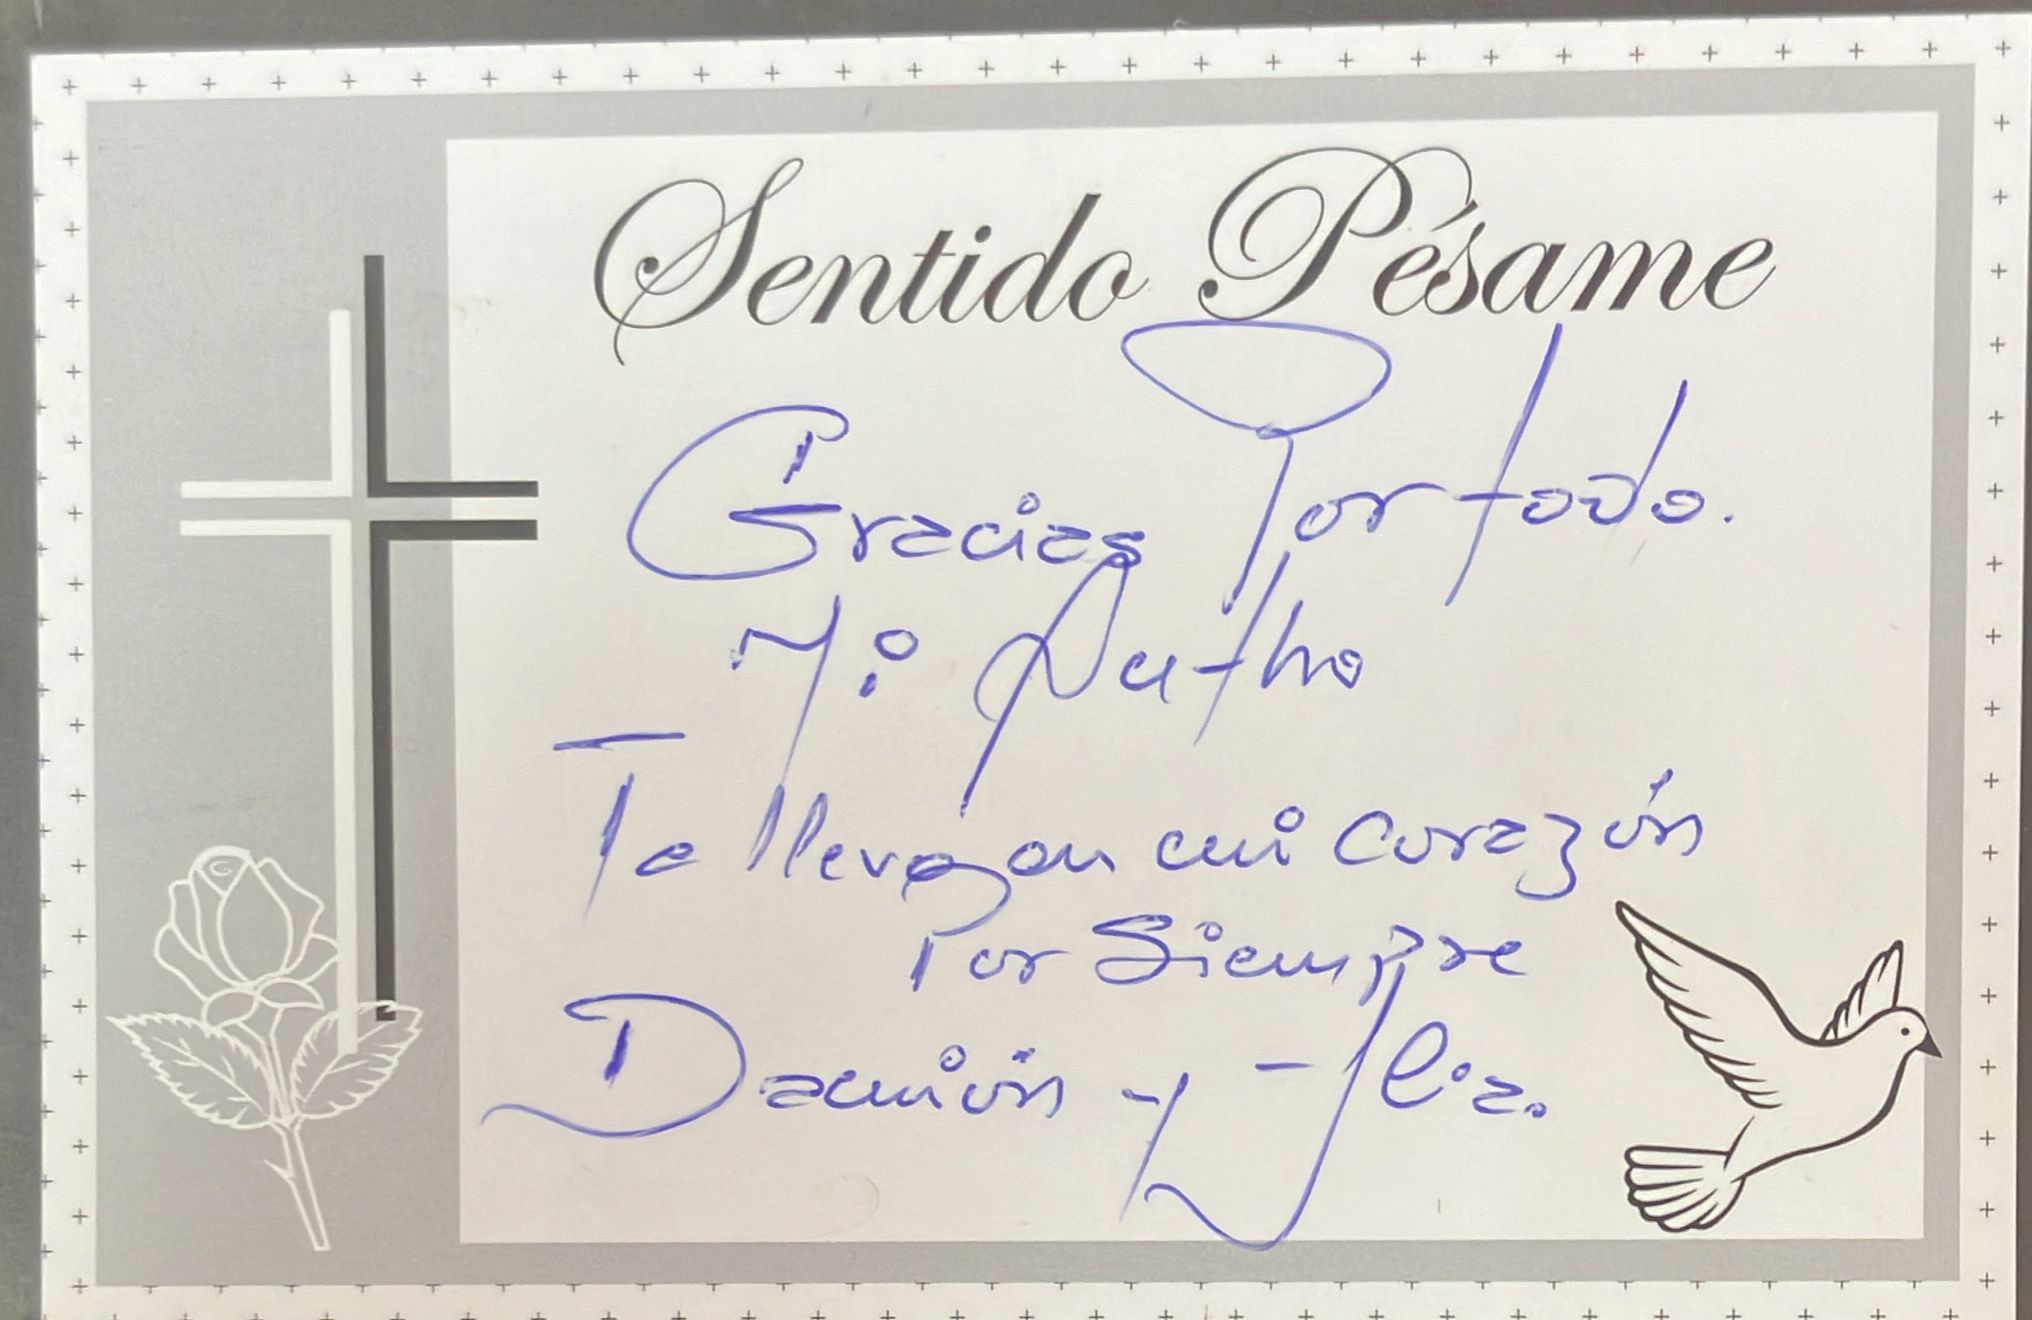 Sentido Pésame
Gracias Por todo.
Mi
Te llevo en mi corazón
Por Siempre
Damión y